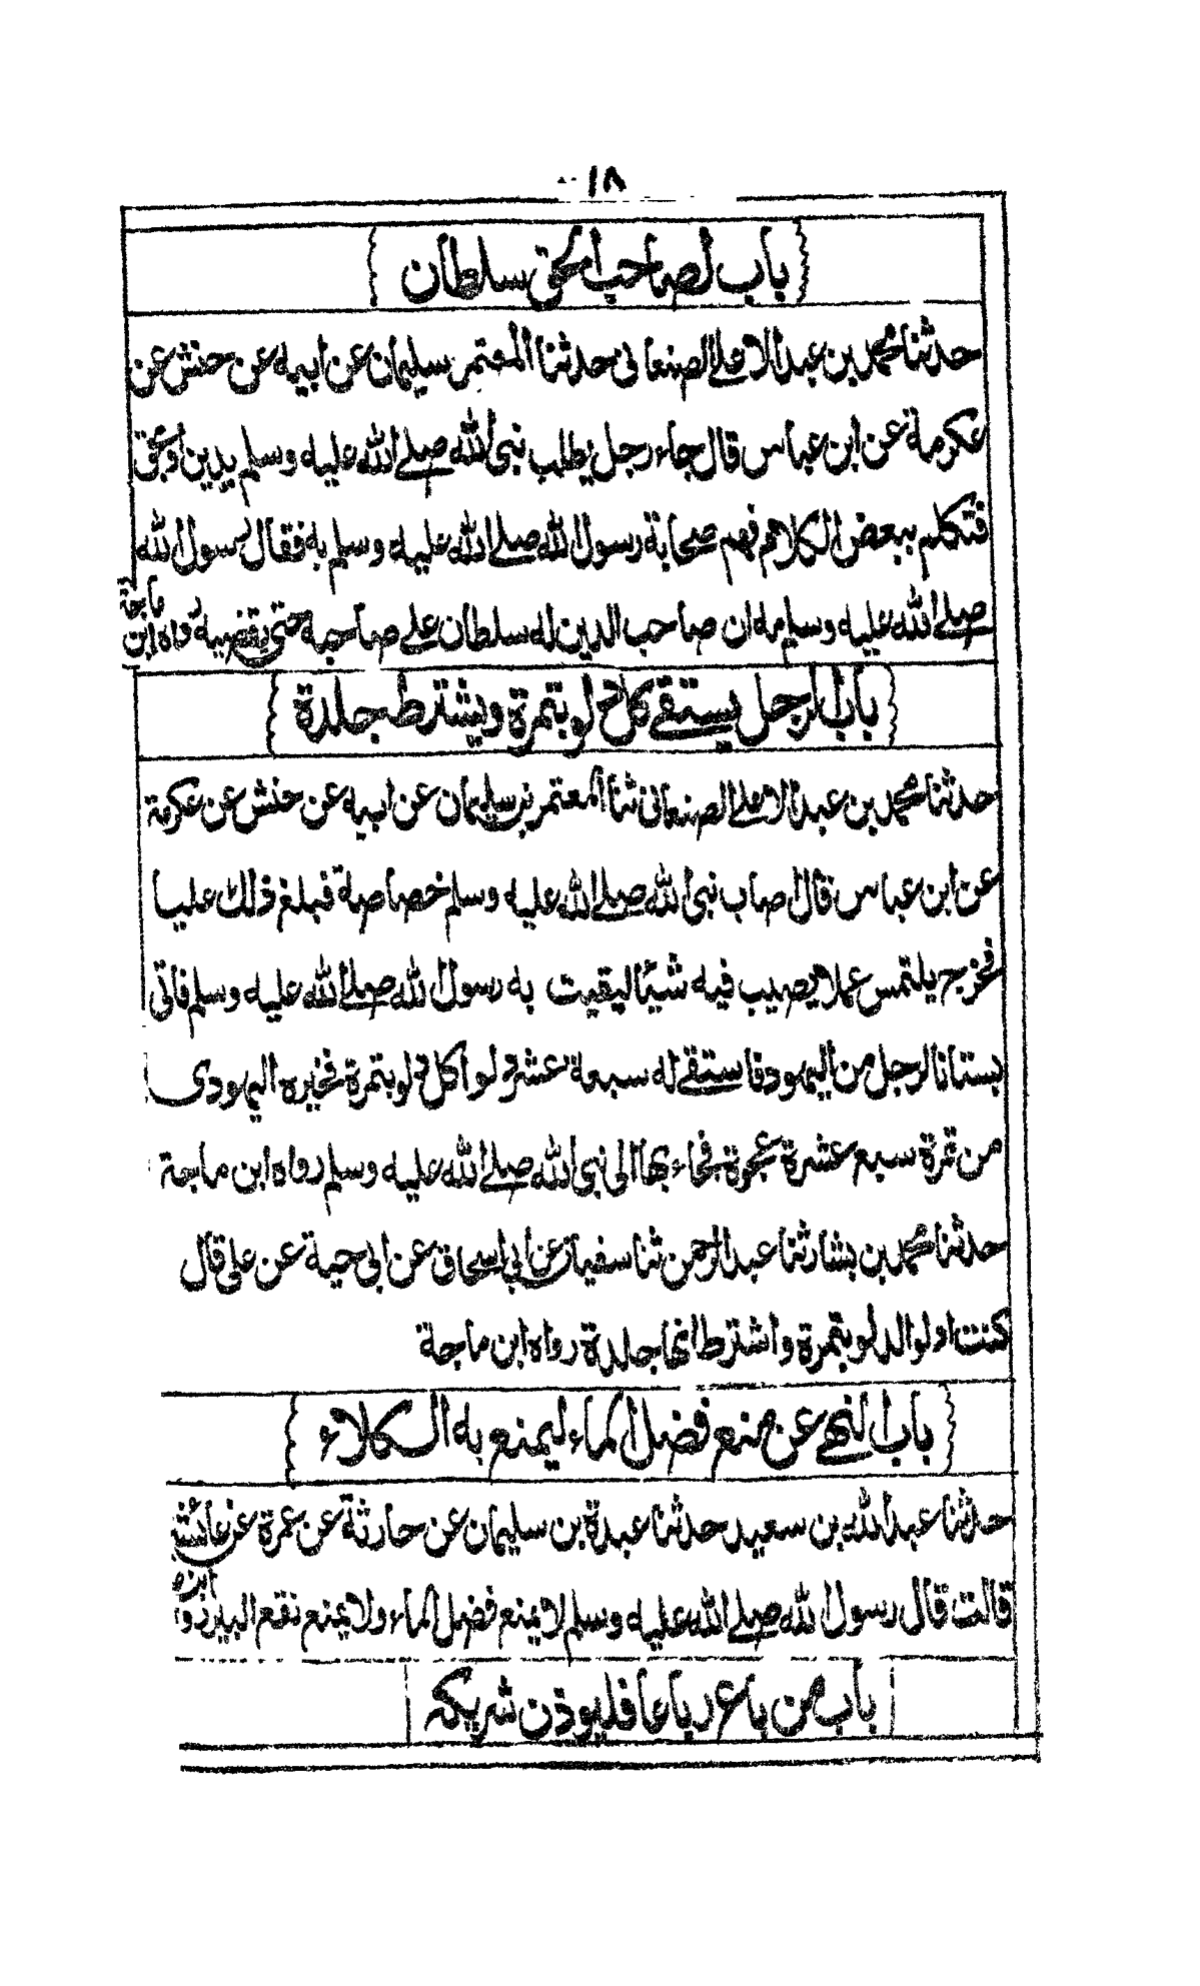 ١٨
باب لصاحب الحق سلطان
حدثنا محمد بن عبد الاعلى الصنعانى حدثنا المعتمر بن سليمان عن ابيه عن حنش عن
عكرمة عن ابن عباس قال جاء رجل يطلب نبى الله صلى الله عليه وسلم بدين او بحق
فتكلم ببعض الكلام فهم صحابة رسول الله صلى الله عليه وسلم به فقال رسول الله
صلى الله عليه وسلم مه ان صاحب الدين له سلطان على صاحبه حتى يقضيه رواه ابن ماجة
باب الرجل يستقى كل دلو بتمرة ويشترط جلدة
حدثنا محمد بن عبد الاعلى الصنعانى ثنا المعتمر بن سليمان عن ابيه عن حنش عن عكرمة
عن ابن عباس قال اصاب نبى الله صلى الله عليه وسلم خصاصة فبلغ ذلك عليا
فخرج يلتمس عملا يصيب فيه شيئا ليقيت به رسول الله صلى الله عليه وسلم فاتى
بستانا لرجل من اليهود فاستقى له سبعة عشر دلوا كل دلو بتمرة فخيره اليهودى
من تمرة سبع عشرة عجوة فجاء بها الى نبى الله صلى الله عليه وسلم رواه ابن ماجة
حدثنا محمد بن بشار ثنا عبد الرحمن ثنا سفيان عن ابى اسحاق عن ابى حية عن على قال
كنت ادلوا الدلو بتمرة واشترط انها جلدة رواه ابن ماجة
باب النهى عن منع فضل الماء ليمنع به الكلاء
حدثنا عبد الله بن سعيد حدثنا عبدة بن سليمان عن حارثة عن عمرة عن عائشة
قالت قال رسول الله صلى الله عليه وسلم لا يمنع فضل الماء ولا يمنع نقع البير
باب من باع رباعا فليوذن شريكه